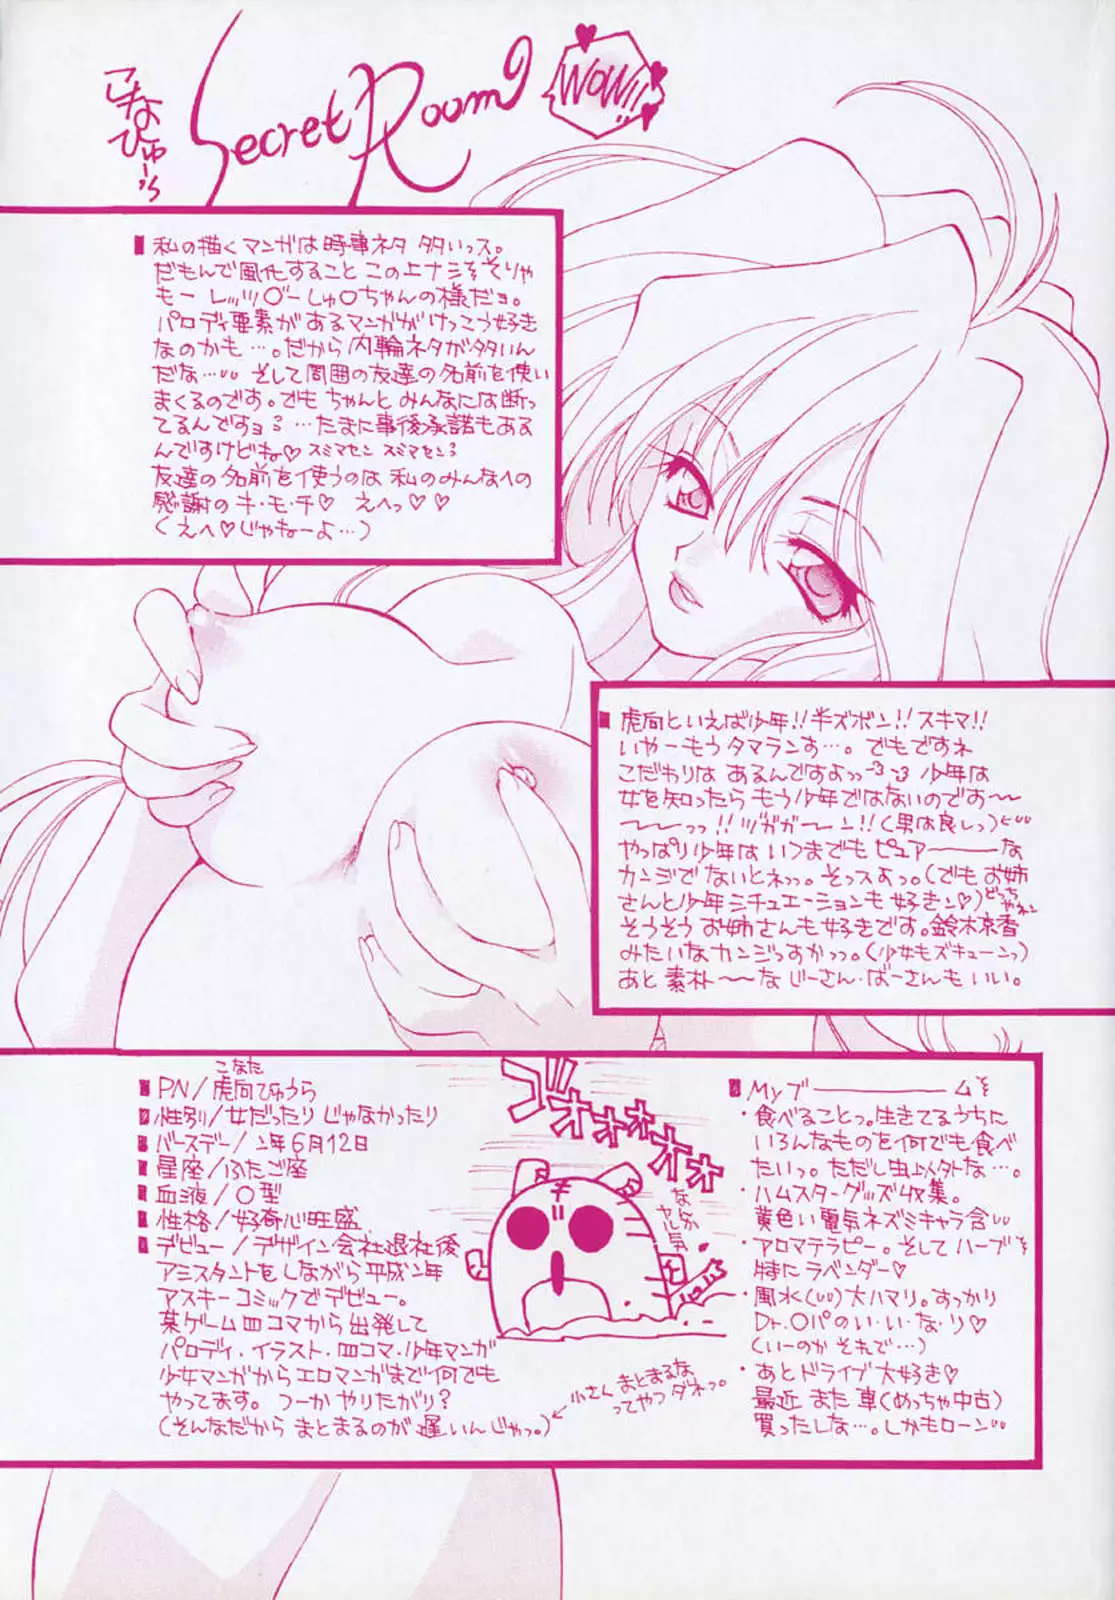 こなたひゅーら
Secret Room
WOW!!
■私の描くマンガは時事ネタ多いっス。
だもんで風化することこの上ナシ。そりゃ
もー レッツ○ーしゅ○ちゃんの様だョ。
パロディ要素があるマンガがけっこう好き
なのかも…。だから内輪ネタが多いん
だな… そして周囲の友達の名前を使い
まくるのです。でもちゃんとみんなには断っ
てるんですョ …たまに事後承諾もある
んですけどね♡スミマセン スミマセン
友達の名前を使うのは私のみんなへの
感謝のキ・モ・チ♡ えへっ♡♡
(えへ♡じゃねーよ…)
■虎向といえば少年!!半ズボン!!スキマ!!
いやーもうタマランす…。でもですネ
こだわりはあるんですよっ 少年は
女を知ったらもう少年ではないのです〜
〜〜っっ!!ヅガガーン!!(男は良しっ)
やっぱり少年はいつまでもピュアーーな
カンジでないとネっっ。そっスよっ。(でもお姉
さんと少年シチュエーションも好きン♡)どっちやネン
そうそうお姉さんも好きです。鈴木京香
みたいなカンジっすかっっ。(少女もズキューンっ)
あと素朴〜〜なじーさん・ばーさんもいい。
こなた
■PN/虎向ひゅうら
■性別/女だったりじゃなかったり
■バースデー/ン年6月12日
■星座/ふたご座
■血液/O型
■性格/好奇心旺盛
■デビュー/デザイン会社退社後
アシスタントをしながら平成ン年
アスキーコミックでデビュー。
某ゲーム四コマから出発して
パロディ・イラスト・四コマ・少年マンガ
少女マンガからエロマンガまで何でも
やってます。つーかやりたがり?
(そんなだからまとまるのが遅いんじゃっ。)
ゴオォォォオォ
なんかヤル気
小さんまとまるな
ってやつダネっ。
■Myブーーーム
・食べることっ。生きてるうちに
いろんなものを何でも食べ
たいっ。ただし虫以外な…。
・ハムスターグッズ収集。
黄色い電気ネズミキャラ含
・アロマテラピー。そしてハーブ
特にラベンダー♡
・風水( )大ハマリ。すっかり
Dr.○パのい・い・な・り♡
(いーのかそれで…)
・あとドライブ大好き♡
最近また車(めっちゃ中古)
買ったしな…。しかもローン